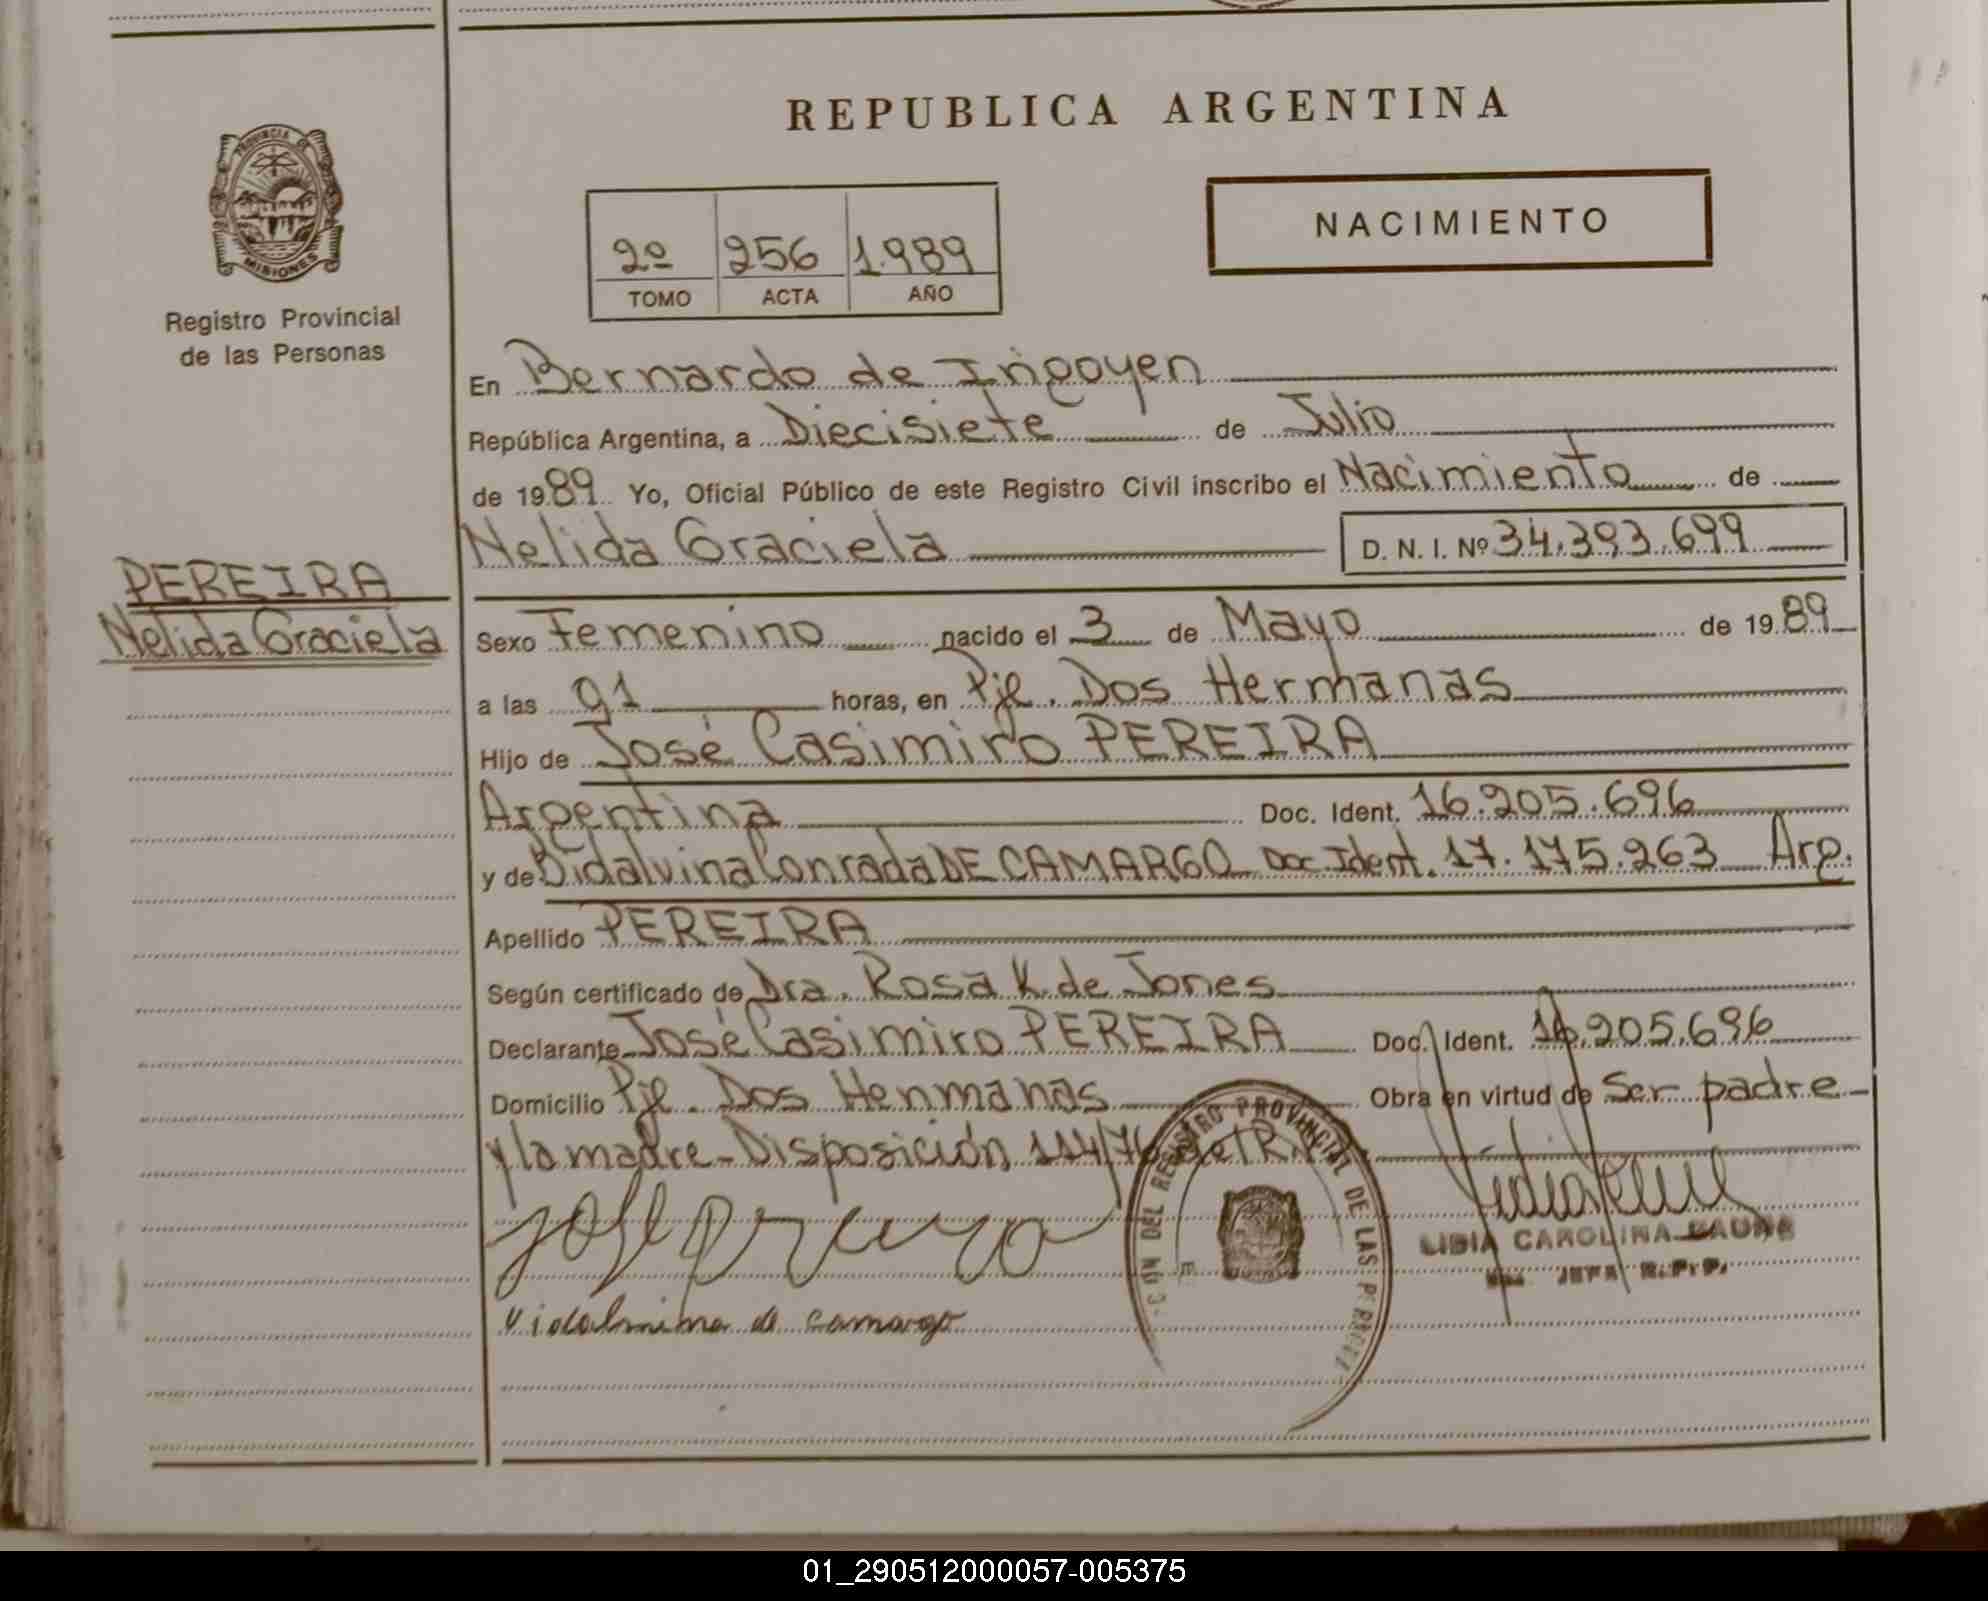 REPUBLICA ARGENTINA
PROVINCIA DE
MISIONES
Registro Provincial
de las Personas
2º 256 1.989
TOMO ACTA AÑO
NACIMIENTO
En Bernardo de Irigoyen
República Argentina, a Diecisiete de Julio
de 1989 Yo, Oficial Público de este Registro Civil inscribo el Nacimiento de
Nelida Graciela D. N. I. Nº 34.393.699
PEREIRA
Nelida Graciela
Sexo Femenino nacido el 3 de Mayo de 1989
a las 01 horas, en Pje. Dos Hermanas
Hijo de José Casimiro PEREIRA
Argentina Doc. Ident. 16.205.696
y de Bidalvina Conrada DE CAMARGO Doc. Ident. 17.175.263 Arg.
Apellido PEREIRA
Según certificado de Dra. Rosa K. de Jones
Declarante José Casimiro PEREIRA Doc. Ident. 16.205.696
Domicilio Pje. Dos Hermanas Obra en virtud de Ser padre
y la madre - Disposición 114/76 del R.
DEL REGISTRO PROVINCIAL DE LAS
LIDIA CAROLINA
JEFA R.P.P.
Vidalvina de Camargo
01_290512000057-005375